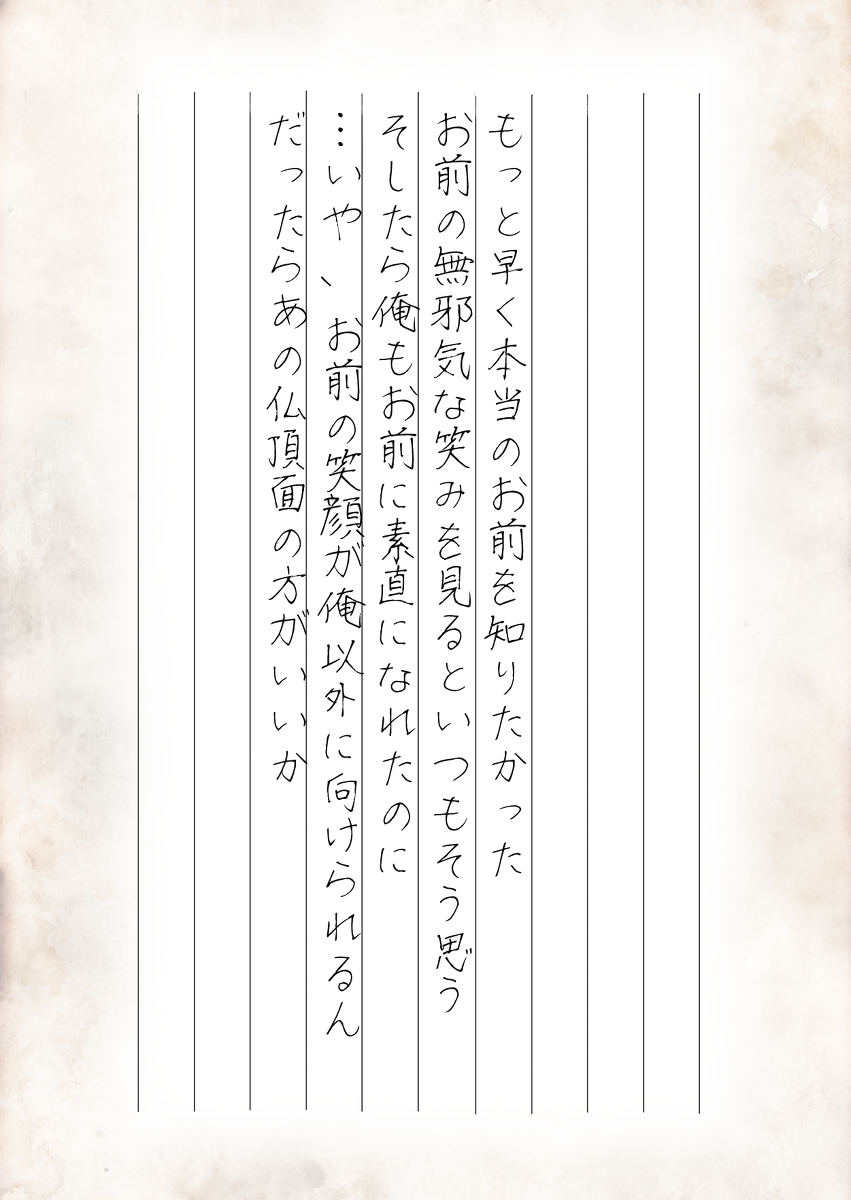 もっと早く本当のお前を知りたかった
お前の無邪気な笑みを見るといつもそう思う
そしたら俺もお前に素直になれたのに
…いや、お前の笑顔が俺以外に向けられるん
だったらあの仏頂面の方がいいか